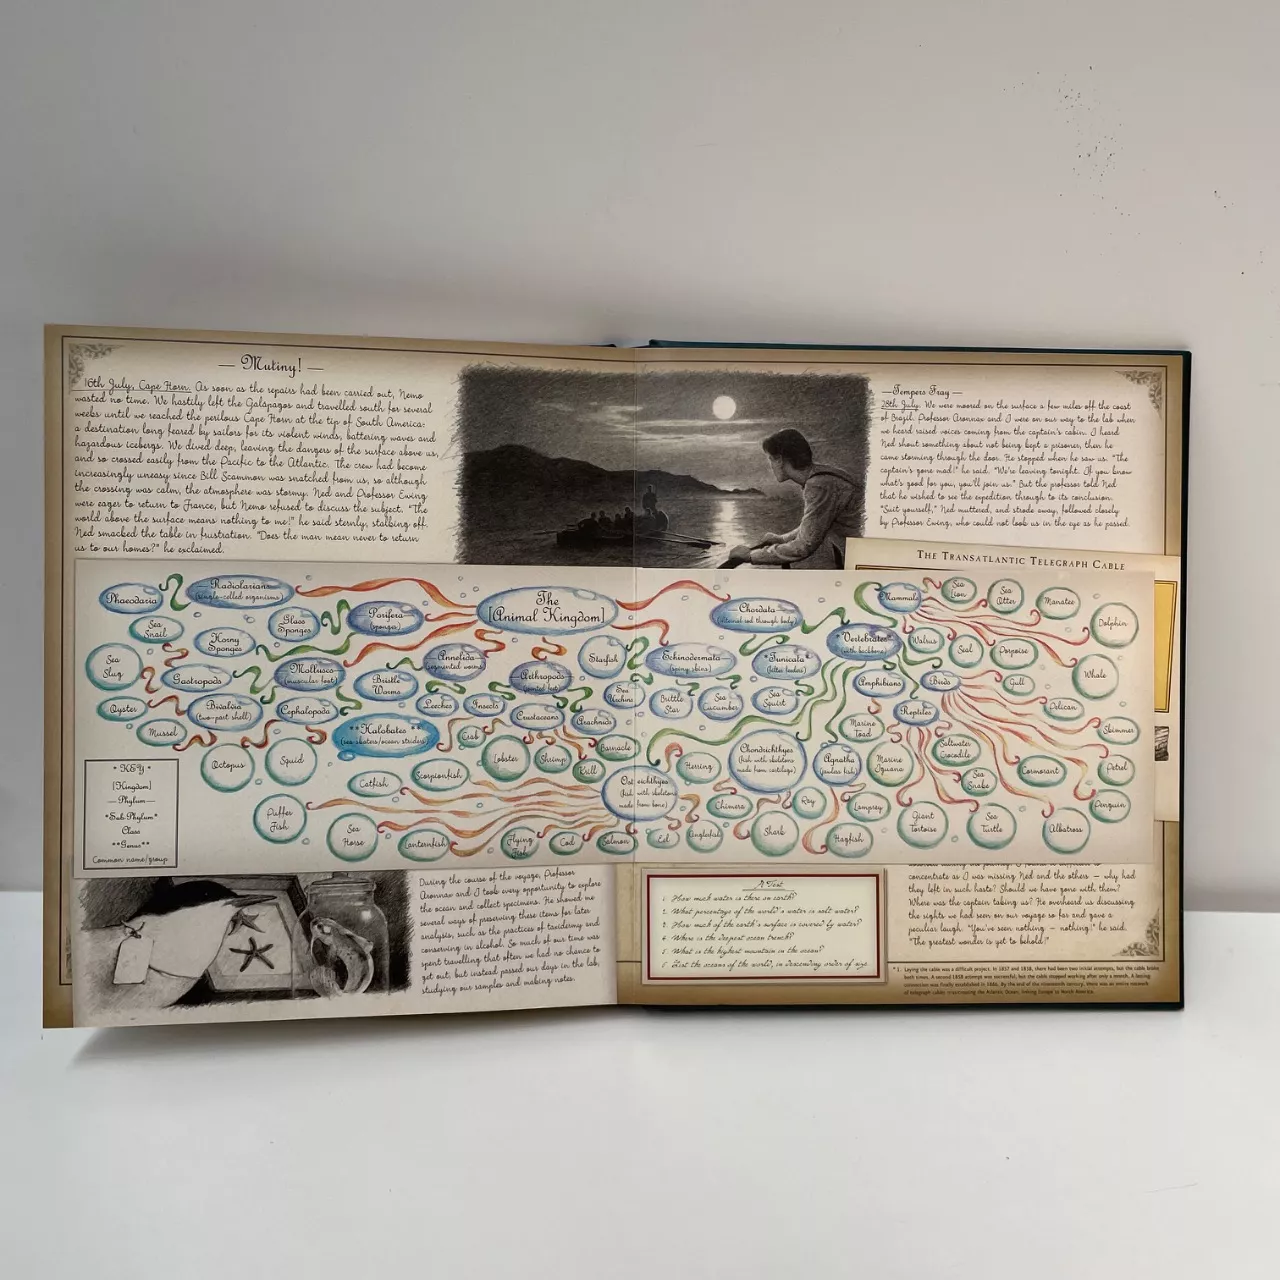 — Mutiny! —
16th July, Cape Horn. As soon as the repairs had been carried out, Nemo
wasted no time. We hastily left the Galapagos and travelled south for several
weeks until we reached the perilous Cape Horn at the tip of South America:
a destination long feared by sailors for its violent winds, battering waves and
hazardous icebergs. We dived deep, leaving the dangers of the surface above us,
and so crossed easily from the Pacific to the Atlantic. The crew had become
increasingly uneasy since Bill Scammon was snatched from us, so although
the crossing was calm, the atmosphere was stormy. Ned and Professor Ewing
were eager to return to France, but Nemo refused to discuss the subject. "The
world above the surface means nothing to me!" he said sternly, stalking off.
Ned smacked the table in frustration. "Does the man mean never to return
us to our homes?" he exclaimed.
— Tempers Fray —
28th July. We were moored on the surface a few miles off the coast
of Brazil. Professor Aronnax and I were on our way to the lab when
we heard raised voices coming from the captain's cabin. I heard
Ned shout something about not being kept a prisoner, then he
came storming through the door. He stopped when he saw us. "The
captain's gone mad!" he said. "We're leaving tonight. If you know
what's good for you, you'll join us." But the professor told Ned
that he wished to see the expedition through to its conclusion.
"Suit yourself," Ned muttered, and strode away, followed closely
by Professor Ewing, who could not look us in the eye as he passed.
THE TRANSATLANTIC TELEGRAPH CABLE
The
[Animal Kingdom]
Phaeodaria
—Radiolarians—
(single-celled organisms)
—Porifera—
(sponges)
Glass
Sponges
Horny
Sponges
Sea
Snail
Sea
Slug
Gastropods
—Mollusca—
(muscular foot)
Bivalvia
(two-part shell)
Cephalopoda
Oyster
Mussel
Octopus
Squid
—Annelida—
(segmented worms)
Bristle
Worms
Leeches
—Arthropoda—
(jointed feet)
Insects
Crustaceans
Arachnids
**Halobates**
(sea skaters/ocean striders)
Crab
Lobster
Shrimp
Krill
Barnacle
Starfish
Sea
Urchins
—Echinodermata—
(spiny skins)
Brittle
Star
Sea
Cucumber
—Chordata—
(internal rod through body)
*Tunicata*
(filter feeders)
Sea
Squirt
*Vertebrates*
(with backbone)
Mammals
Sea
Lion
Sea
Otter
Manatee
Dolphin
Walrus
Seal
Porpoise
Whale
Amphibians
Marine
Toad
Birds
Gull
Pelican
Skimmer
Petrel
Cormorant
Penguin
Albatross
Reptiles
Marine
Iguana
Saltwater
Crocodile
Sea
Snake
Giant
Tortoise
Sea
Turtle
Chondrichthyes
(fish with skeletons
made from cartilage)
Chimera
Shark
Ray
Agnatha
(jawless fish)
Lamprey
Hagfish
Osteichthyes
(fish with skeletons
made from bone)
Herring
Catfish
Scorpionfish
Puffer
Fish
Sea
Horse
Lanternfish
Flying
Fish
Cod
Salmon
Eel
Anglefish
* KEY *
[Kingdom]
—Phylum—
*Sub Phylum*
Class
**Genus**
Common name/group
During the course of the voyage, Professor
Aronnax and I took every opportunity to explore
the ocean and collect specimens. He showed me
several ways of preserving these items for later
analysis, such as the practices of taxidermy and
conserving in alcohol. So much of our time was
spent travelling that often we had no chance to
get out, but instead passed our days in the lab,
studying our samples and making notes.
A Test
1. How much water is there on earth?
2. What percentage of the world's water is salt water?
3. How much of the earth's surface is covered by water?
4. Where is the deepest ocean trench?
5. What is the highest mountain in the ocean?
6. List the oceans of the world, in descending order of size.
concentrate as I was missing Ned and the others — why had
they left in such haste? Should we have gone with them?
Where was the captain taking us? He overheard us discussing
the sights we had seen on our voyage so far and gave a
peculiar laugh. "You've seen nothing — nothing!" he said.
"The greatest wonder is yet to behold!"
* 1. Laying the cable was a difficult project. In 1857 and 1858, there had been two initial attempts, but the cable broke
both times. A second 1858 attempt was successful, but the cable stopped working after only a month. A lasting
connection was finally established in 1866. By the end of the nineteenth century, there was an entire network
of telegraph cables crisscrossing the Atlantic Ocean, linking Europe to North America.